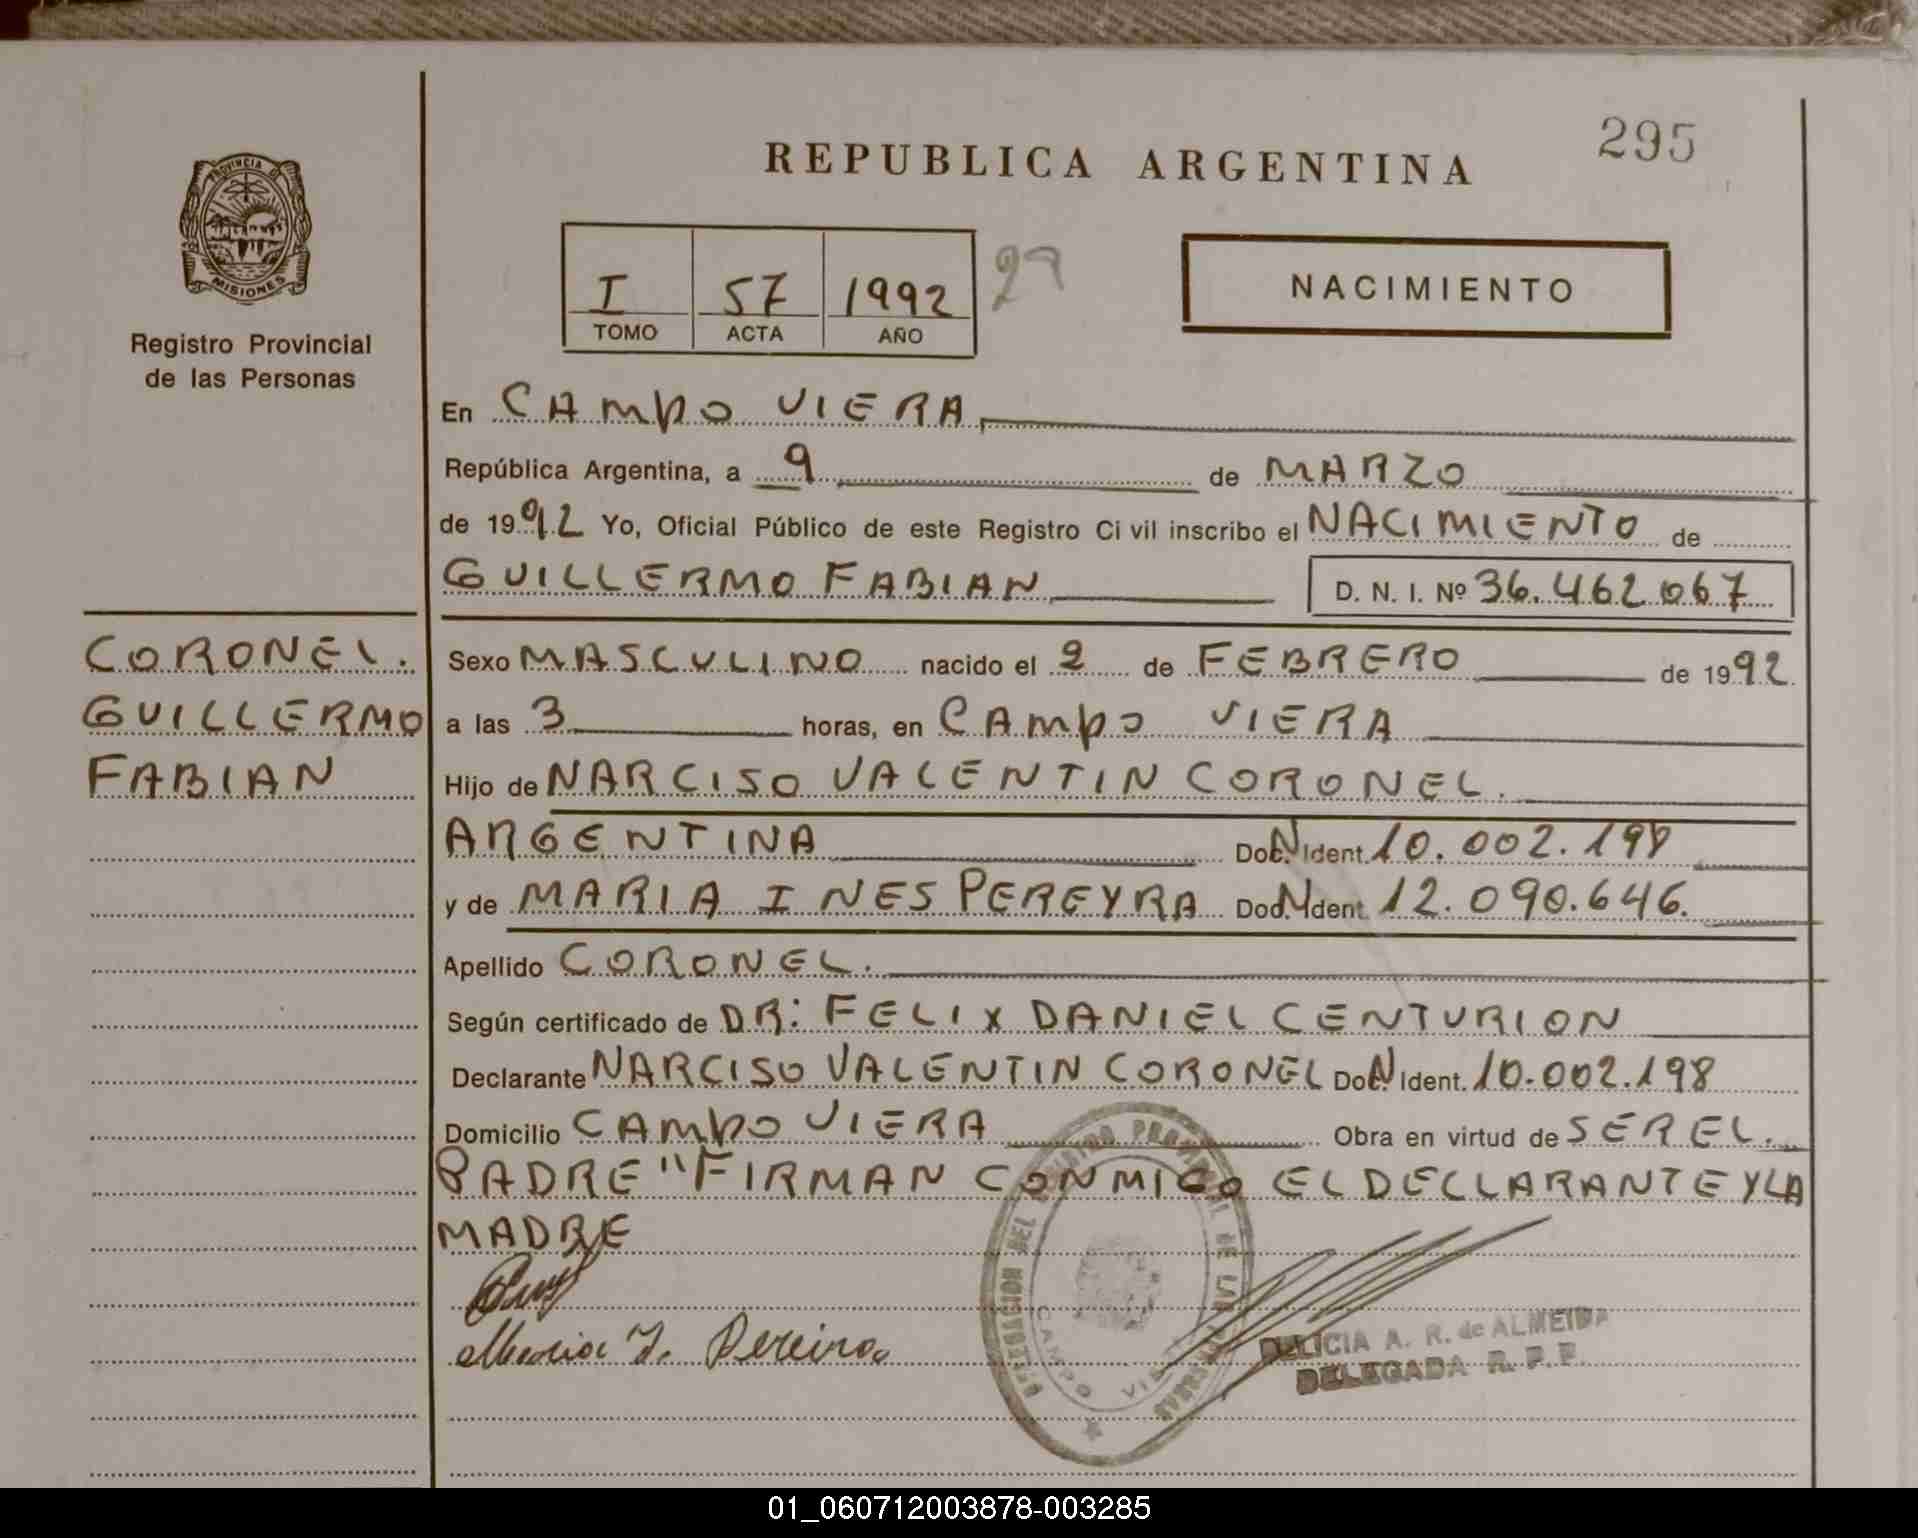 295
REPUBLICA ARGENTINA
PROVINCIA D
MISIONES
Registro Provincial
de las Personas
I 57 1992 29
TOMO ACTA AÑO
NACIMIENTO
En CAMPO VIERA
República Argentina, a 9 de MARZO
de 1992 Yo, Oficial Público de este Registro Civil inscribo el NACIMIENTO de
GUILLERMO FABIAN D. N. I. Nº 36.462.067
CORONEL.
GUILLERMO
FABIAN
Sexo MASCULINO nacido el 2 de FEBRERO de 1992
a las 3 horas, en CAMPO VIERA
Hijo de NARCISO VALENTIN CORONEL.
ARGENTINA Doc. Ident. 10.002.198
y de MARIA INES PEREYRA Doc. Ident. 12.090.646.
Apellido CORONEL.
Según certificado de DR: FELIX DANIEL CENTURION
Declarante NARCISO VALENTIN CORONEL Doc. Ident. 10.002.198
Domicilio CAMPO VIERA Obra en virtud de SER EL.
PADRE "FIRMAN CONMIGO EL DECLARANTE Y LA
MADRE
Maria I. Pereira
DELEGACION DEL REGISTRO PROVINCIAL DE LAS PERSONAS
CAMPO VIERA
DELICIA A. R. de ALMEIDA
DELEGADA R. P. P.
01_060712003878-003285